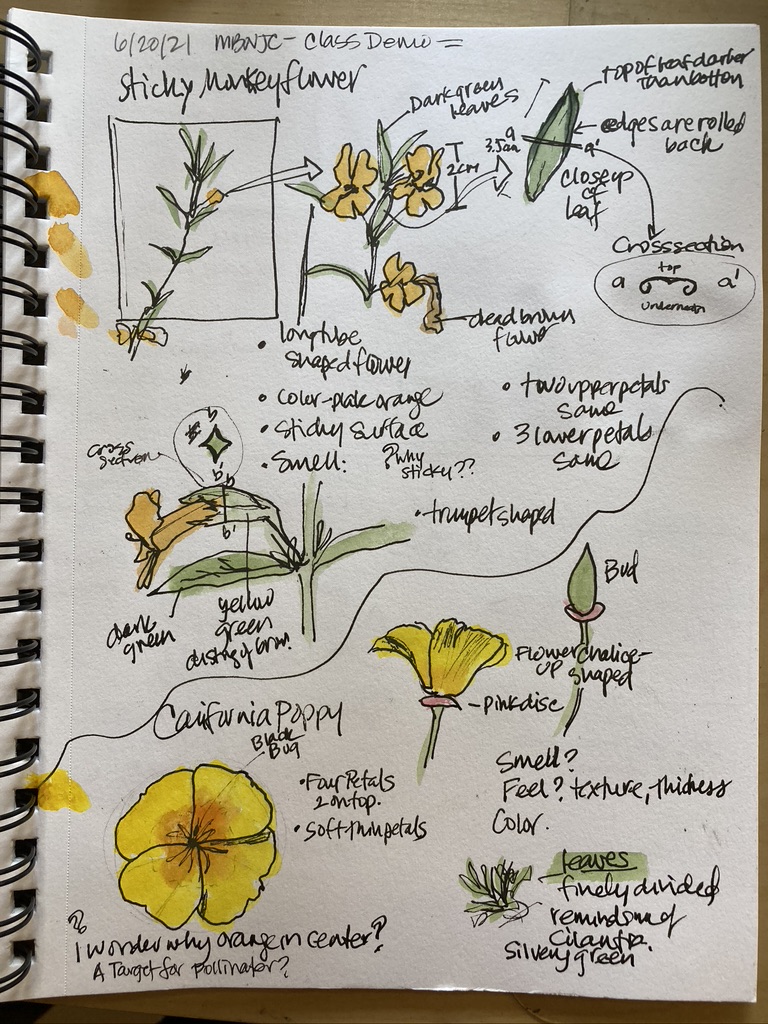 6/20/21 MBNJC - Class Demo =
Sticky Monkeyflower
Dark green
leaves
top of leaf darker
than bottom
edges are rolled
back
a
3.5cm
a'
2cm
Close up
of
leaf
Cross section
top
a a'
underneath
dead brown
flower
• long tube
shaped flower
• color - pale orange
• Sticky surface
• Smell:
? why
sticky??
• two upper petals
same
• 3 lower petals
same
• trumpet shaped
cross
section
b
b'
b
b'
dark
green
yellow
green
dusting of brwn.
Bud
Flower chalice -
up shaped
- pink disc
California Poppy
Black
Bug
• Four Petals
2 on top.
• Soft-thin petals
Smell?
Feel? texture, thickness
Color.
leaves
finely divided
remindsme of
cilantro.
Silvery green
?
I wonder why orange in center?
A Target for pollinator?